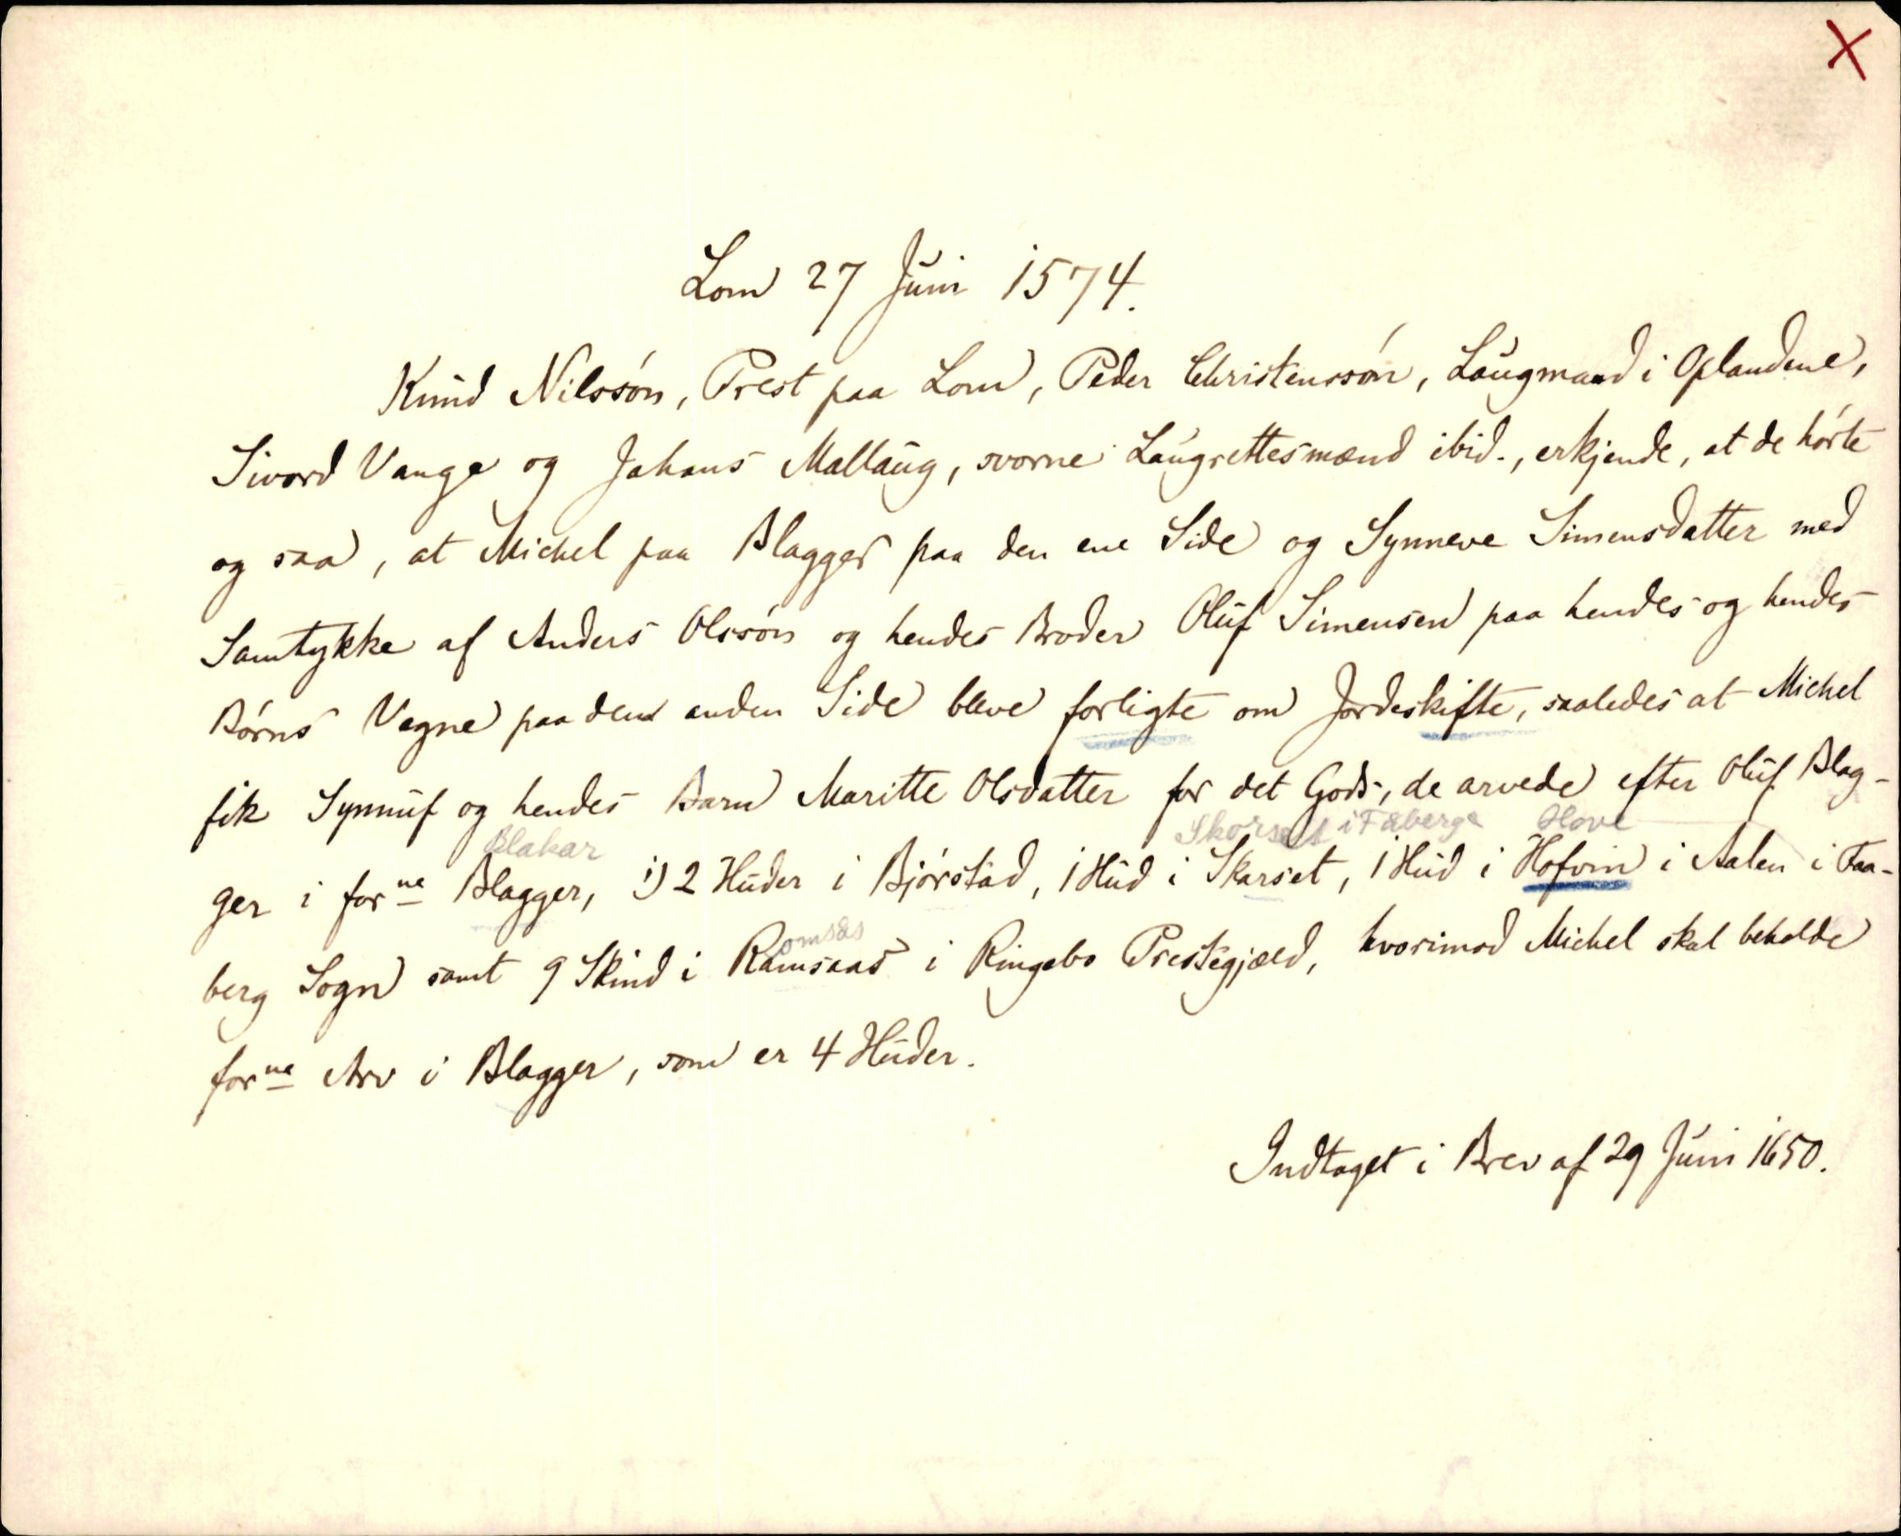 X
Lom 27 Juni 1574.
Knud Nilssøn, Prest paa Lom, Peder Christenssøn, Laugmand i Oplandene,
Sivord Vange og Johans Mallaug, svorne Laugrettesmænd ibid., erkjende, at de hørte
og saa, at Michel paa Blagger paa den ene Side og Synneve Simensdatter med
Samtykke af Anders Olssøn og hendes Broder Oluf Simensen paa hendes og hendes
Børns Vegne paa den anden Side bleve forligte om Jordeskifte, saaledes at Michel
fik Synnuf og hendes Barn Maritte Olsdatter for det Gods, de arvede efter Oluf Blag-
Blakar Skorset i Fåberge Hove
ger i forne Blagger, 2 Huder i Bjørstad, 1 Hud i Skarset, 1 Hud i Hofvin i Aalen i Faa-
omsås
berg Sogn samt 9 Skind i Ramsaas i Ringebo Prestegjæld, hvorimod Michel skal beholde
forne Arv i Blagger, som er 4 Huder.
Indtaget i Brev af 29 Juni 1650.